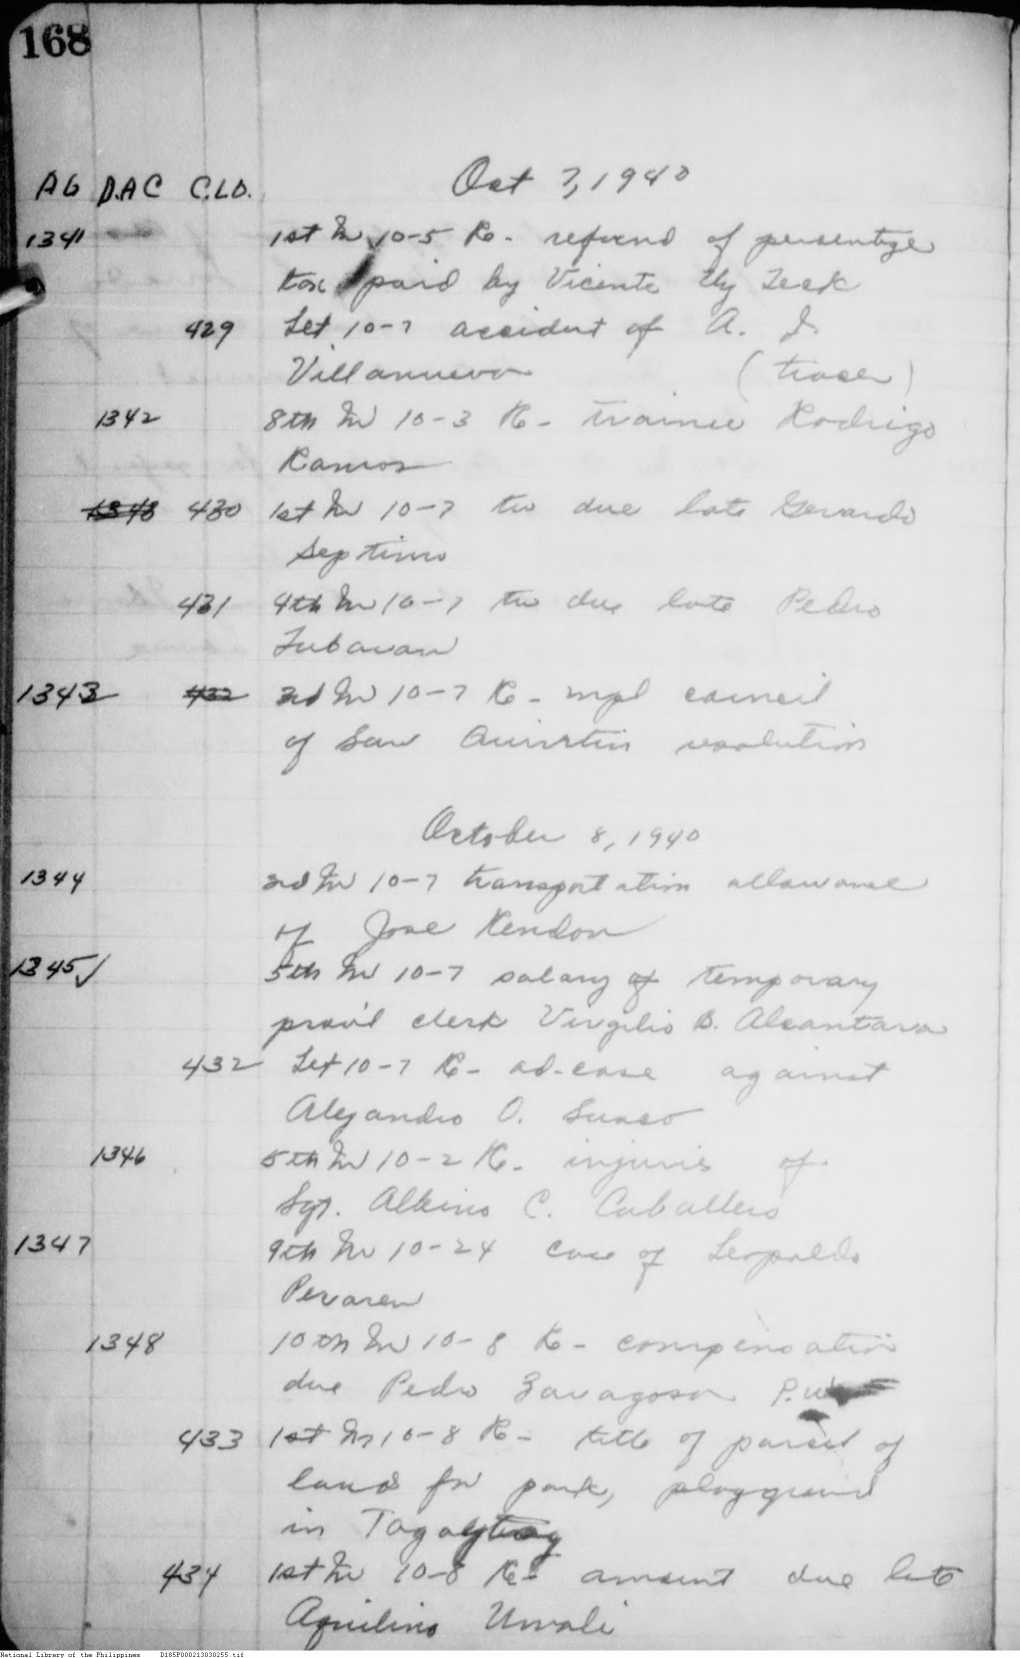 168
AG D.A C C.L.D. Oct 7, 1940
1341 1st In 10-5 Re- refund of percentage
tax paid by Vicente Uy Teek
429 Let 10-7 accident of A. J.
Villanueva (tracer)
1342 8th In 10-3 Re- trainee Rodrigo
Ramos
1343 430 1st In 10-7 tw due late Gerardo
Septimo
431 4th In 10-7 tw due late Pedro
Tubavan
1343 432 3rd In 10-7 Re- mpl council
of San Quintin resolution
October 8, 1940
1344 3rd In 10-7 transportation allowance
of Jose Rendon
1345 5th In 10-7 salary of temporary
provil clerk Virgilio B. Alcantara
432 Let 10-7 Re- ad-case against
Alejandro O.
1346 5th In 10-2 Re- injuries of
Sgt. Albino C. Caballero
1347 9th In 10-24 case of Leopoldo
Pevaren
1348 10th In 10-8 Re- compensation
due Pedro Zaragosa P.W.
433 1st In 10-8 Re- title of parcel of
land for park, playground
in Tagaytay
434 1st In 10-8 Re- amount due late
Aquilino Umali
National Library of the Philippines D185P000213030255.tif